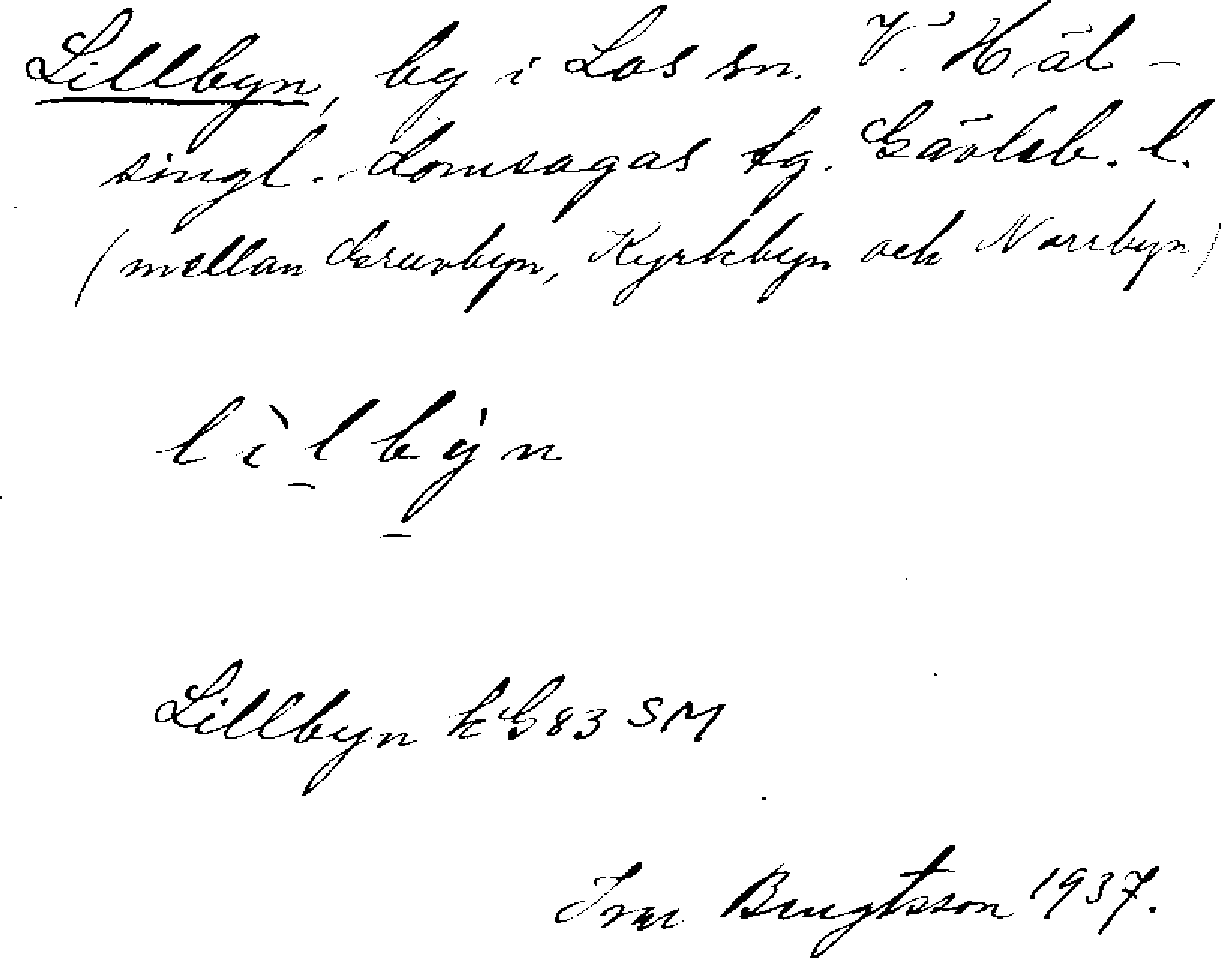 Lillbyn, by i Los sn. V. Häl-
singl. domsagas tg. Gävleb. l.
(mellan Gruvbyn, Kyrkbyn och Norrbyn)
lìl̠bẏ̠n
Lillbyn kG83 SM
Ivar Bengtsson 1937.